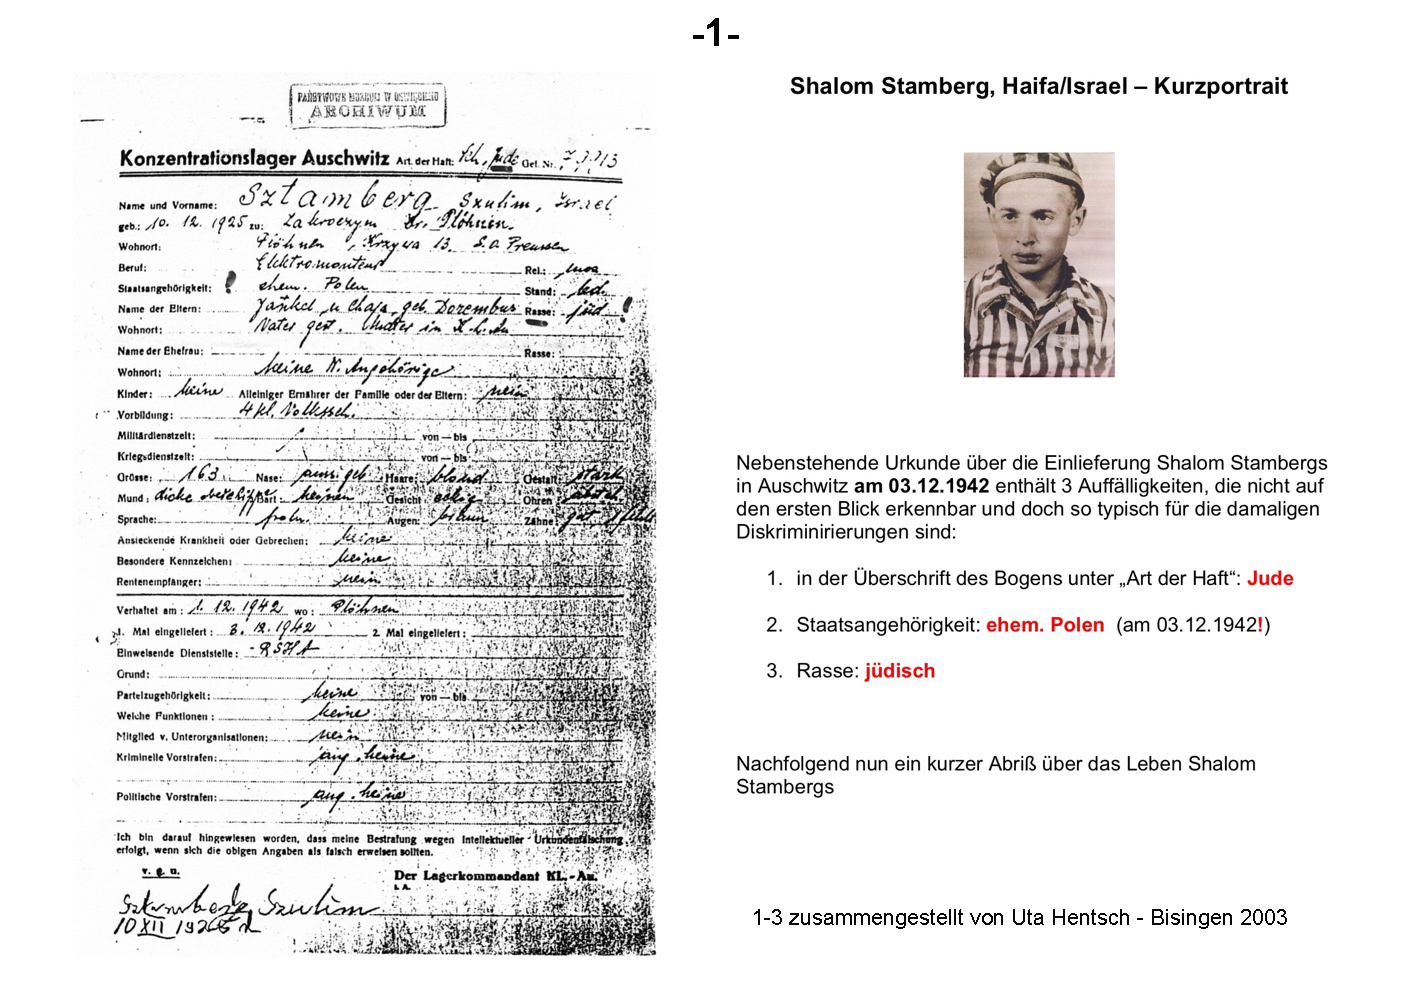 -1-
PAŃSTWOWE MUZEUM W OŚWIĘCIMIU
ARCHIWUM
Konzentrationslager Auschwitz Art. der Haft: Sch, Jude Gef. Nr.
Name und Vorname: Sztamberg Szulim, Israel
geb.: 10. 12. 1925 zu: Zakroczym Kr. Plöhnen.
Wohnort: Plöhnen, Krzywa 13. S.O. Preussen
Beruf: Elektromonteur Rel.: mos
Staatsangehörigkeit: ! ehem. Polen Stand: led.
Name der Eltern: Jankel u Chaja, geb. Dorembus Rasse: jüd !
Wohnort: Vater gest. Mutter in K.L. Au
Name der Ehefrau: Rasse:
Wohnort: keine N. Angehörige
Kinder: keine Alleiniger Ernährer der Familie oder der Eltern: nein
Vorbildung: 4 kl. Volkssch.
Militärdienstzeit: von — bis
Kriegsdienstzeit: von — bis
Grösse: 163 Nase: Haare: blond Gestalt: stark
Mund: dicke Bart: keinen Gesicht eckig Ohren:
Sprache: poln. Augen: braun Zähne: gut
Ansteckende Krankheit oder Gebrechen: keine
Besondere Kennzeichen: keine
Rentenempfänger: nein
Verhaftet am: 1. 12. 1942 wo: Plöhnen
1. Mal eingeliefert: 3. 12. 1942 2. Mal eingeliefert:
Einweisende Dienststelle: RSHA
Grund:
Parteizugehörigkeit: keine von — bis
Welche Funktionen: keine
Mitglied v. Unterorganisationen: nein
Kriminelle Vorstrafen: ang. keine
Politische Vorstrafen: ang. keine
Ich bin darauf hingewiesen worden, dass meine Bestrafung wegen intellektueller Urkundenfälschung
erfolgt, wenn sich die obigen Angaben als falsch erweisen sollten.
v. g. u. Der Lagerkommandant KL.-Au.
i. A.
Sztamberg Szulim
Shalom Stamberg, Haifa/Israel – Kurzportrait
Nebenstehende Urkunde über die Einlieferung Shalom Stambergs
in Auschwitz am 03.12.1942 enthält 3 Auffälligkeiten, die nicht auf
den ersten Blick erkennbar und doch so typisch für die damaligen
Diskriminirierungen sind:
1. in der Überschrift des Bogens unter „Art der Haft“: Jude
2. Staatsangehörigkeit: ehem. Polen (am 03.12.1942!)
3. Rasse: jüdisch
Nachfolgend nun ein kurzer Abriß über das Leben Shalom
Stambergs
1-3 zusammengestellt von Uta Hentsch - Bisingen 2003